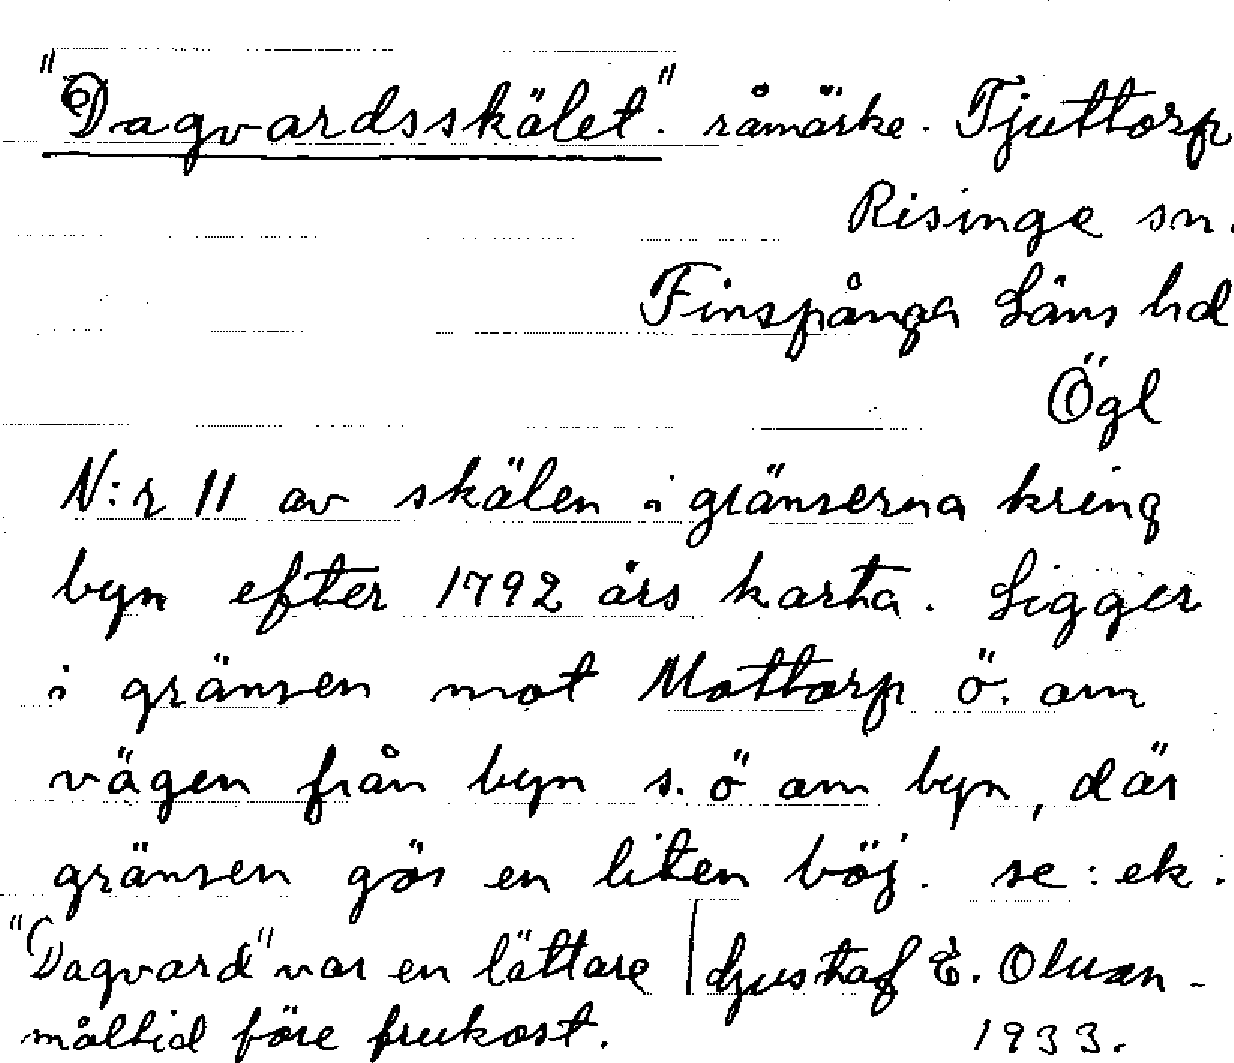 "Dagvardsskälet". råmärke. Tjuttorp
Risinge sn.
Finspånga Läns hd
Ögl
N:r 11 av skälen i gränserna kring
byn efter 1792 års karta. Ligger
i gränsen mot Mottorp ö. om
vägen från byn s. ö om byn, där
gränsen gör en liten böj. se: ek.
"Dagvard" var en lättare
måltid före frukost.
Gustaf E. Olsson
1933.